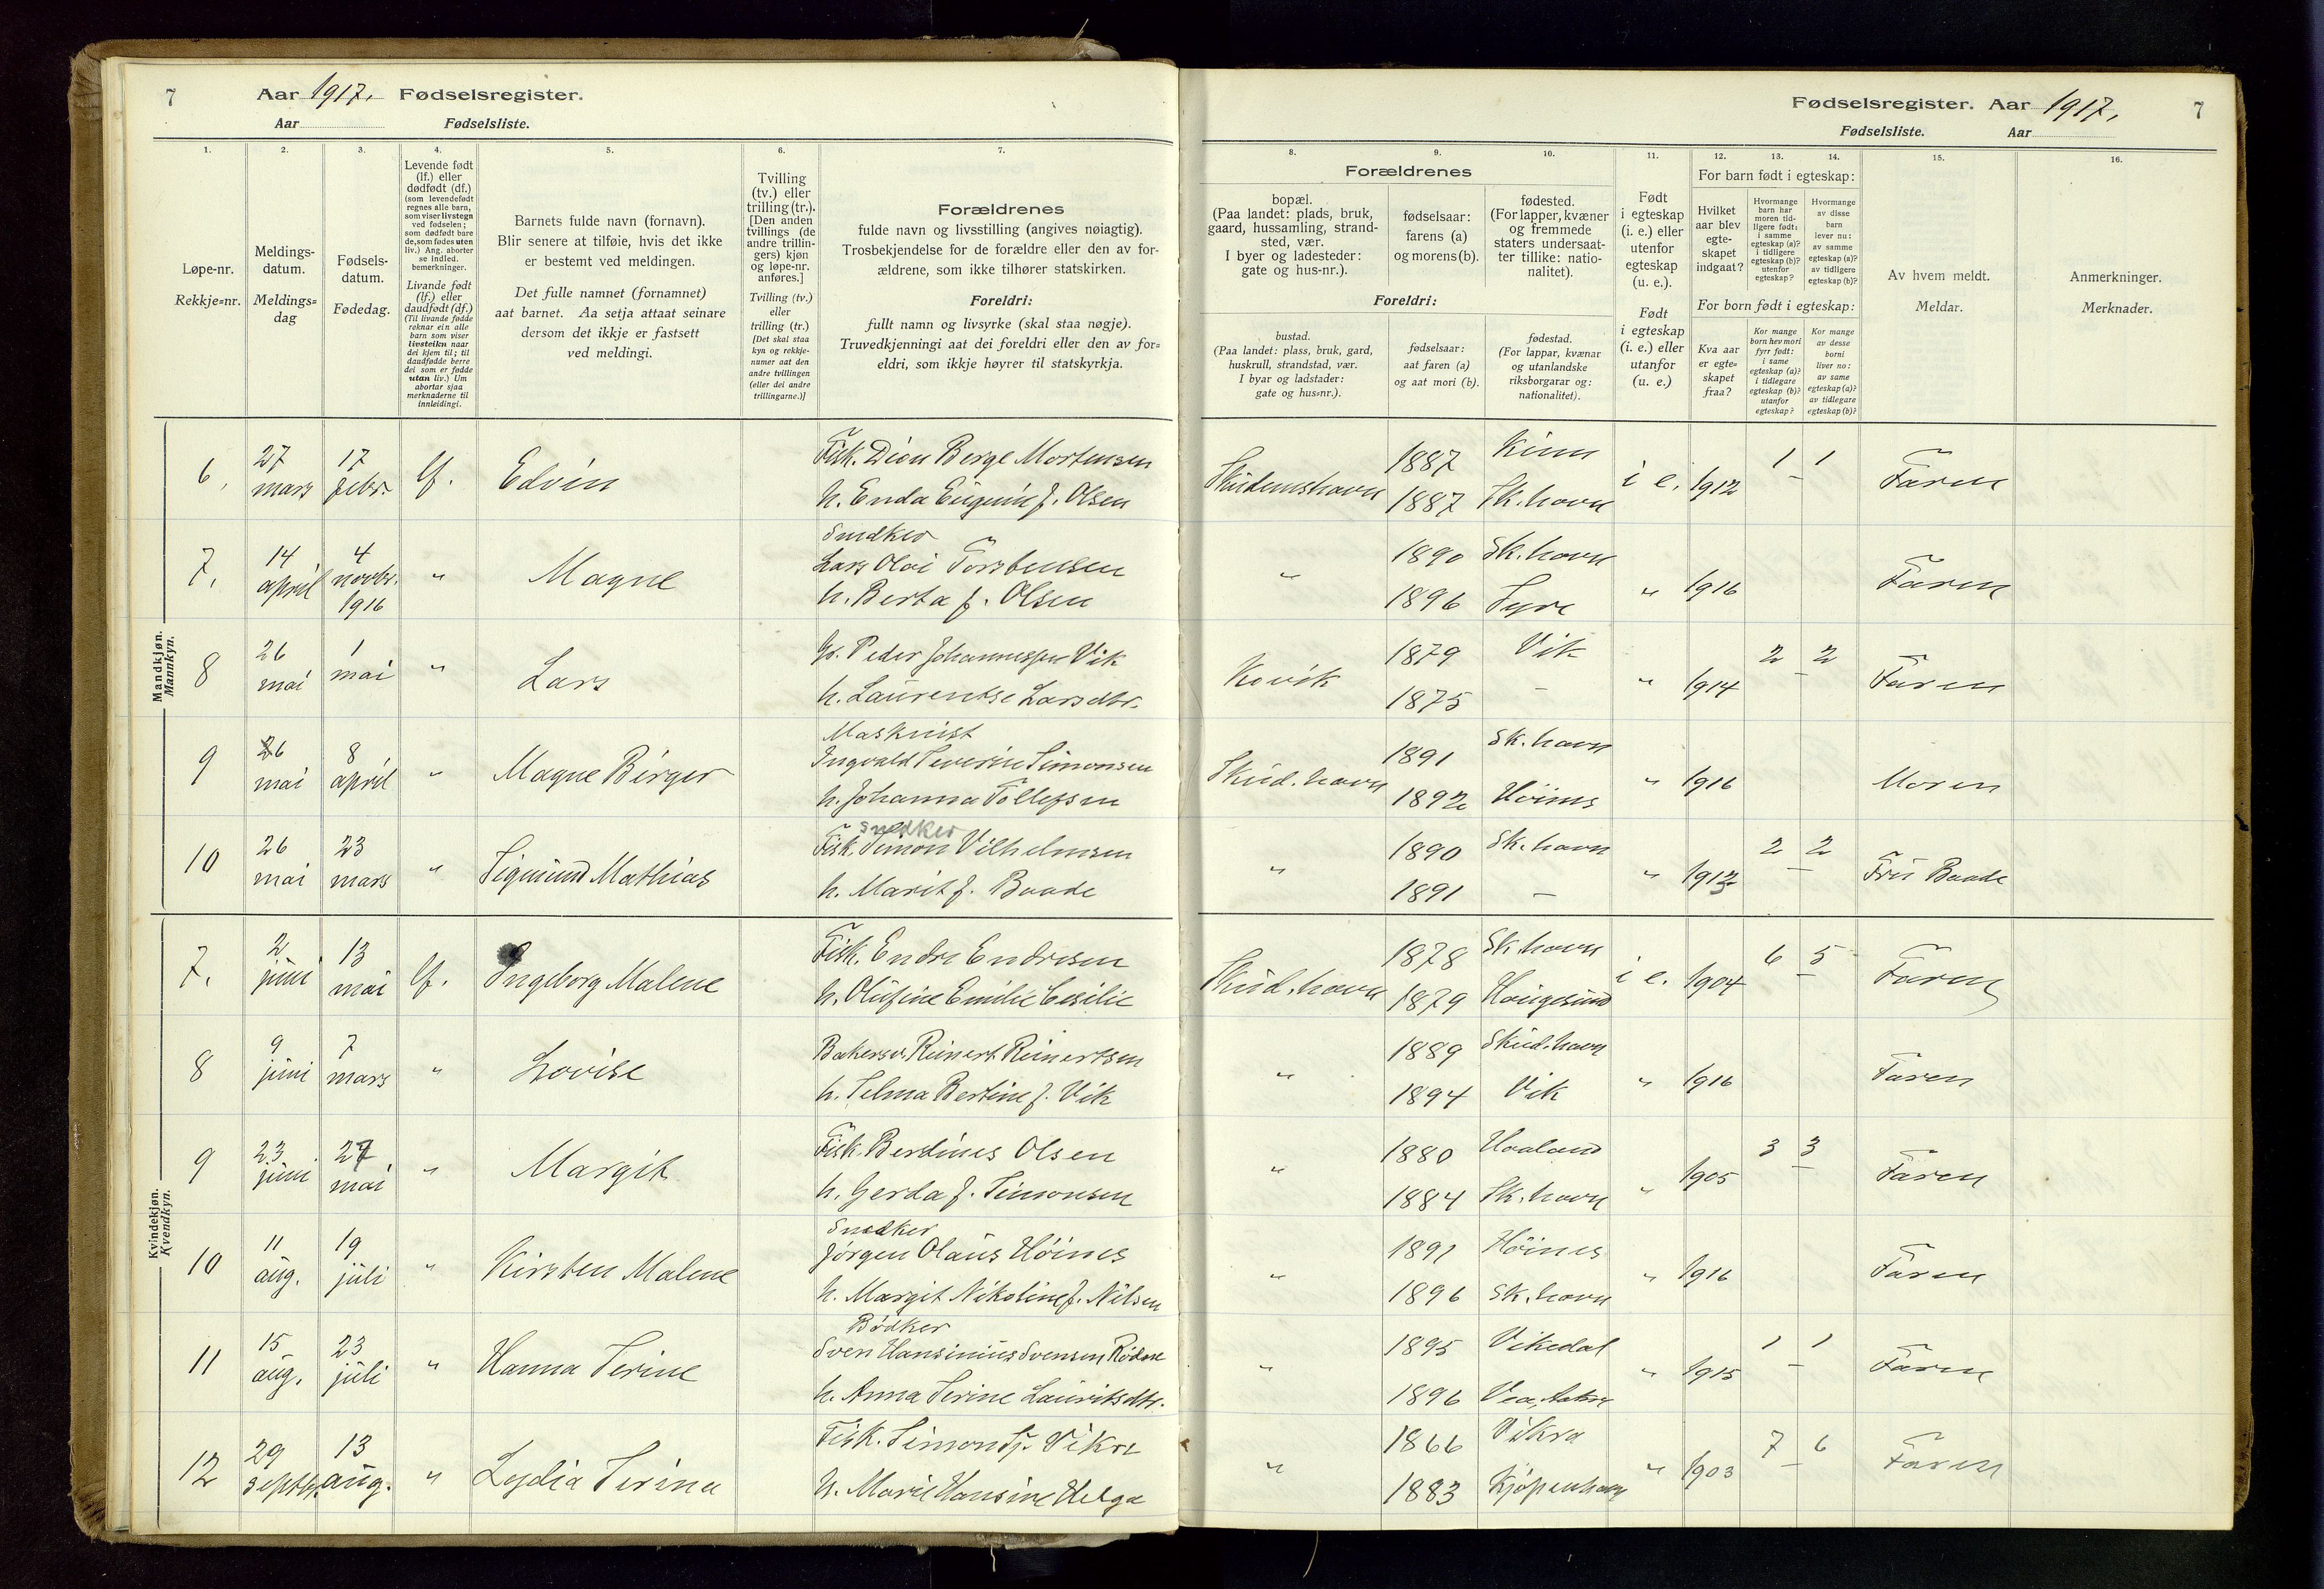 7 Aar 1917. Fødselsregister.
Aar Fødselsliste.
1. 2. 3. 4. 5. 6. 7.
Løpe-nr.
Rekkje=nr.
Meldings-
datum.
Meldings=
dag
Fødsels-
datum.
Fødedag.
Levende født
(lf.) eller
dødfødt (df.)
(som levendefødt
regnes alle barn,
som viser livstegn
ved fødselen;
som dødfødt bare
de, som fødes uten
liv.) Ang. aborter
se indled.
bemerkninger.
Livande født
(lf.) eller
daudfødt (df.)
(Til livande fødde
reknar ein alle
barn som viser
livsteikn naar
dei kjem til; til
daudfødde berre
dei som er fødde
utan liv.) Um
abortar sjaa
merknaderne til
innleidingi.
Barnets fulde navn (fornavn).
Blir senere at tilføie, hvis det ikke
er bestemt ved meldingen.
Det fulle namnet (fornamnet)
aat barnet. Aa setja attaat seinare
dersom det ikkje er fastsett
ved meldingi.
Tvilling
(tv.) eller
trilling (tr.).
[Den anden
tvillings (de
andre trillin-
gers) kjøn
og løpe-nr.
anføres.]
Tvilling (tv.)
eller
trilling (tr.)
[Det skal staa
kyn og rekkje-
numer aat den
andre tvillingen
(eller dei andre
trillingarne.)]
Forældrenes
fulde navn og livsstilling (angives nøiagtig).
Trosbekjendelse for de forældre eller den av for-
ældrene, som ikke tilhører statskirken.
Foreldri:
fullt namn og livsyrke (skal staa nøgje).
Truvedkjenningi aat dei foreldri eller den av for=
eldri, som ikkje høyrer til statskyrkja.
Mandkjøn.
Mannkyn.
6, 27 mars 17 febr. lf. Edvin
Fisk. Dion Berge Mortensen
h. Enda Eugenie f. Olsen
7, 14 april 4 novbr. 1916 " Magne
Snedker
Lars Olai Torstensen
h. Berta f. Olsen
8 26 mai 1 mai " Lars
Peder Johannessen Vik
h. Laurentse Larsdtr.
9 26 mai 8 april " Magne Birger
Maskinist
Ingvald Severin Simonsen
h. Johanna Tollefsen
10 26 mai 23 mars " Sigmund Mathias
snedker
Fisk. Simon Vilhelmsen
h. Marit f. Baade
Kvindekjøn.
Kvendkyn.
7. 2 juni 13 mai lf. Ingeborg Malene
Fisk. Endre Endresen
h. Olufine Emilie Cesilie
8 9 juni 7 mars " Lovise
Bakersv. Reinert Reinertsen
h. Selma Bertine f. Vik
9 23 juni 27 mai " Margit
Fisk. Berdines Olsen
h. Gerda f. Simonsen
10 11 aug. 19 juli " Kirsten Malene
Snedker
Jörgen Olaus Höines
h. Margit Nikoline f. Nilsen
11 15 aug. 23 juli " Hanna Serine
Bødker
Sven Hansinius Svensen Rødne
h. Anna Serine Lauritsdtr.
12 29 septbr. 13 aug. " Lydia Serine
Fisk. Simon Sj. Vikre
h. Marie Hansine Helga
Fødselsregister. Aar 1917, 7
Fødselsliste. Aar
8. 9. 10. 11. 12. 13. 14. 15. 16.
Forældrenes
bopæl.
(Paa landet: plads, bruk,
gaard, hussamling, strand-
sted, vær.
I byer og ladesteder:
gate og hus-nr.).
fødselsaar:
farens (a)
og morens (b).
fødested.
(For lapper, kvæner
og fremmede
staters undersaat-
ter tillike: natio-
nalitet).
Foreldri:
bustad.
(Paa landet: plass, bruk, gard,
huskrull, strandstad, vær.
I byar og ladstader:
gate og hus=nr.).
fødselsaar:
aat faren (a)
og aat mori (b).
fødestad.
(For lappar, kvænar
og utanlandske
riksborgarar og:
nationalitet).
Født
i egteskap
(i. e.) eller
utenfor
egteskap
(u. e.).
Født
i egteskap
(i. e.) eller
utanfor
(u. e.)
For barn født i egteskap:
Hvilket
aar blev
egte-
skapet
indgaat?
Hvormange
barn har
moren tid-
ligere født:
i samme
egteskap (a)?
i tidligere
egteskap (b)?
utenfor
egteskap?
Hvormange
av disse
barn
lever nu:
av samme
egteskap (a)?
av tidligere
egteskap (b)?
For born født i egteskap:
Kva aar
er egte=
skapet
fraa?
Kor mange
born hev mori
fyrr født:
i same
egteskap (a)?
i tidlegare
egteskap (b)?
utanfor
egteskap?
Kor mange
av desse
borni
liver no:
av same
egteskap (a)?
av tidlegare
egteskap (b)?
Av hvem meldt.
Meldar.
Anmerkninger.
Merknader.
Skudenshavn 1887 Kinn i e. 1912 1 1 Faren
1887 Sk.havn
" 1890 Sk.havn " 1916 Faren
1896 Syre
Kovik 1879 Vik " 1914 2 2 Faren
1875 —
Skud.havn 1891 Sk.havn " 1916 Moren
1892 Höines
" 1890 Sk.havn " 1913 2 2 Fru Baade
1891 —
Skud.havn 1878 Sk.havn i e. 1904 6 5 Faren
1879 Haugesund
" 1889 Skud.havn " 1916 Faren
1894 Vik
" 1880 Haaland " 1905 3 3 Faren
1884 Sk.havn
" 1891 Höines " 1916 Faren
1896 Sk.havn
" 1895 Vikedal " 1915 1 1 Faren
1896 Vea,
" 1866 Vikra " 1903 7 6 Faren
1883 Kjöpenhavn